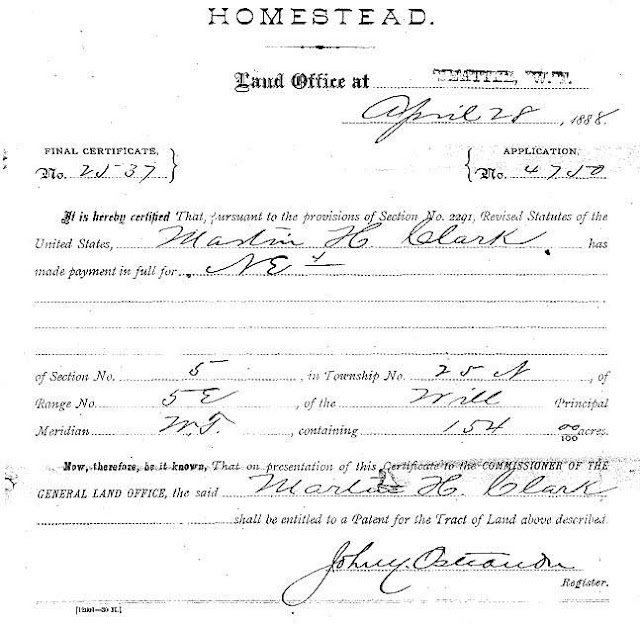 HOMESTEAD.
Land Office at SEATTLE, W.T.
April 28, 1888.
FINAL CERTIFICATE, No. 2537 } { APPLICATION, No. 4750
It is hereby certified That, pursuant to the provisions of Section No. 2291, Revised Statutes of the
United States, Martin H. Clark has
made payment in full for NE ¼
of Section No. 5, in Township No. 25 N, of
Range No. 5E, of the Will Principal
Meridian W.T., containing 154 00/100 acres.
Now, therefore, be it known, That on presentation of this Certificate to the COMMISSIONER OF THE
GENERAL LAND OFFICE, the said Martin H. Clark
shall be entitled to a Patent for the Tract of Land above described.
John Y. Ostrander
Register.